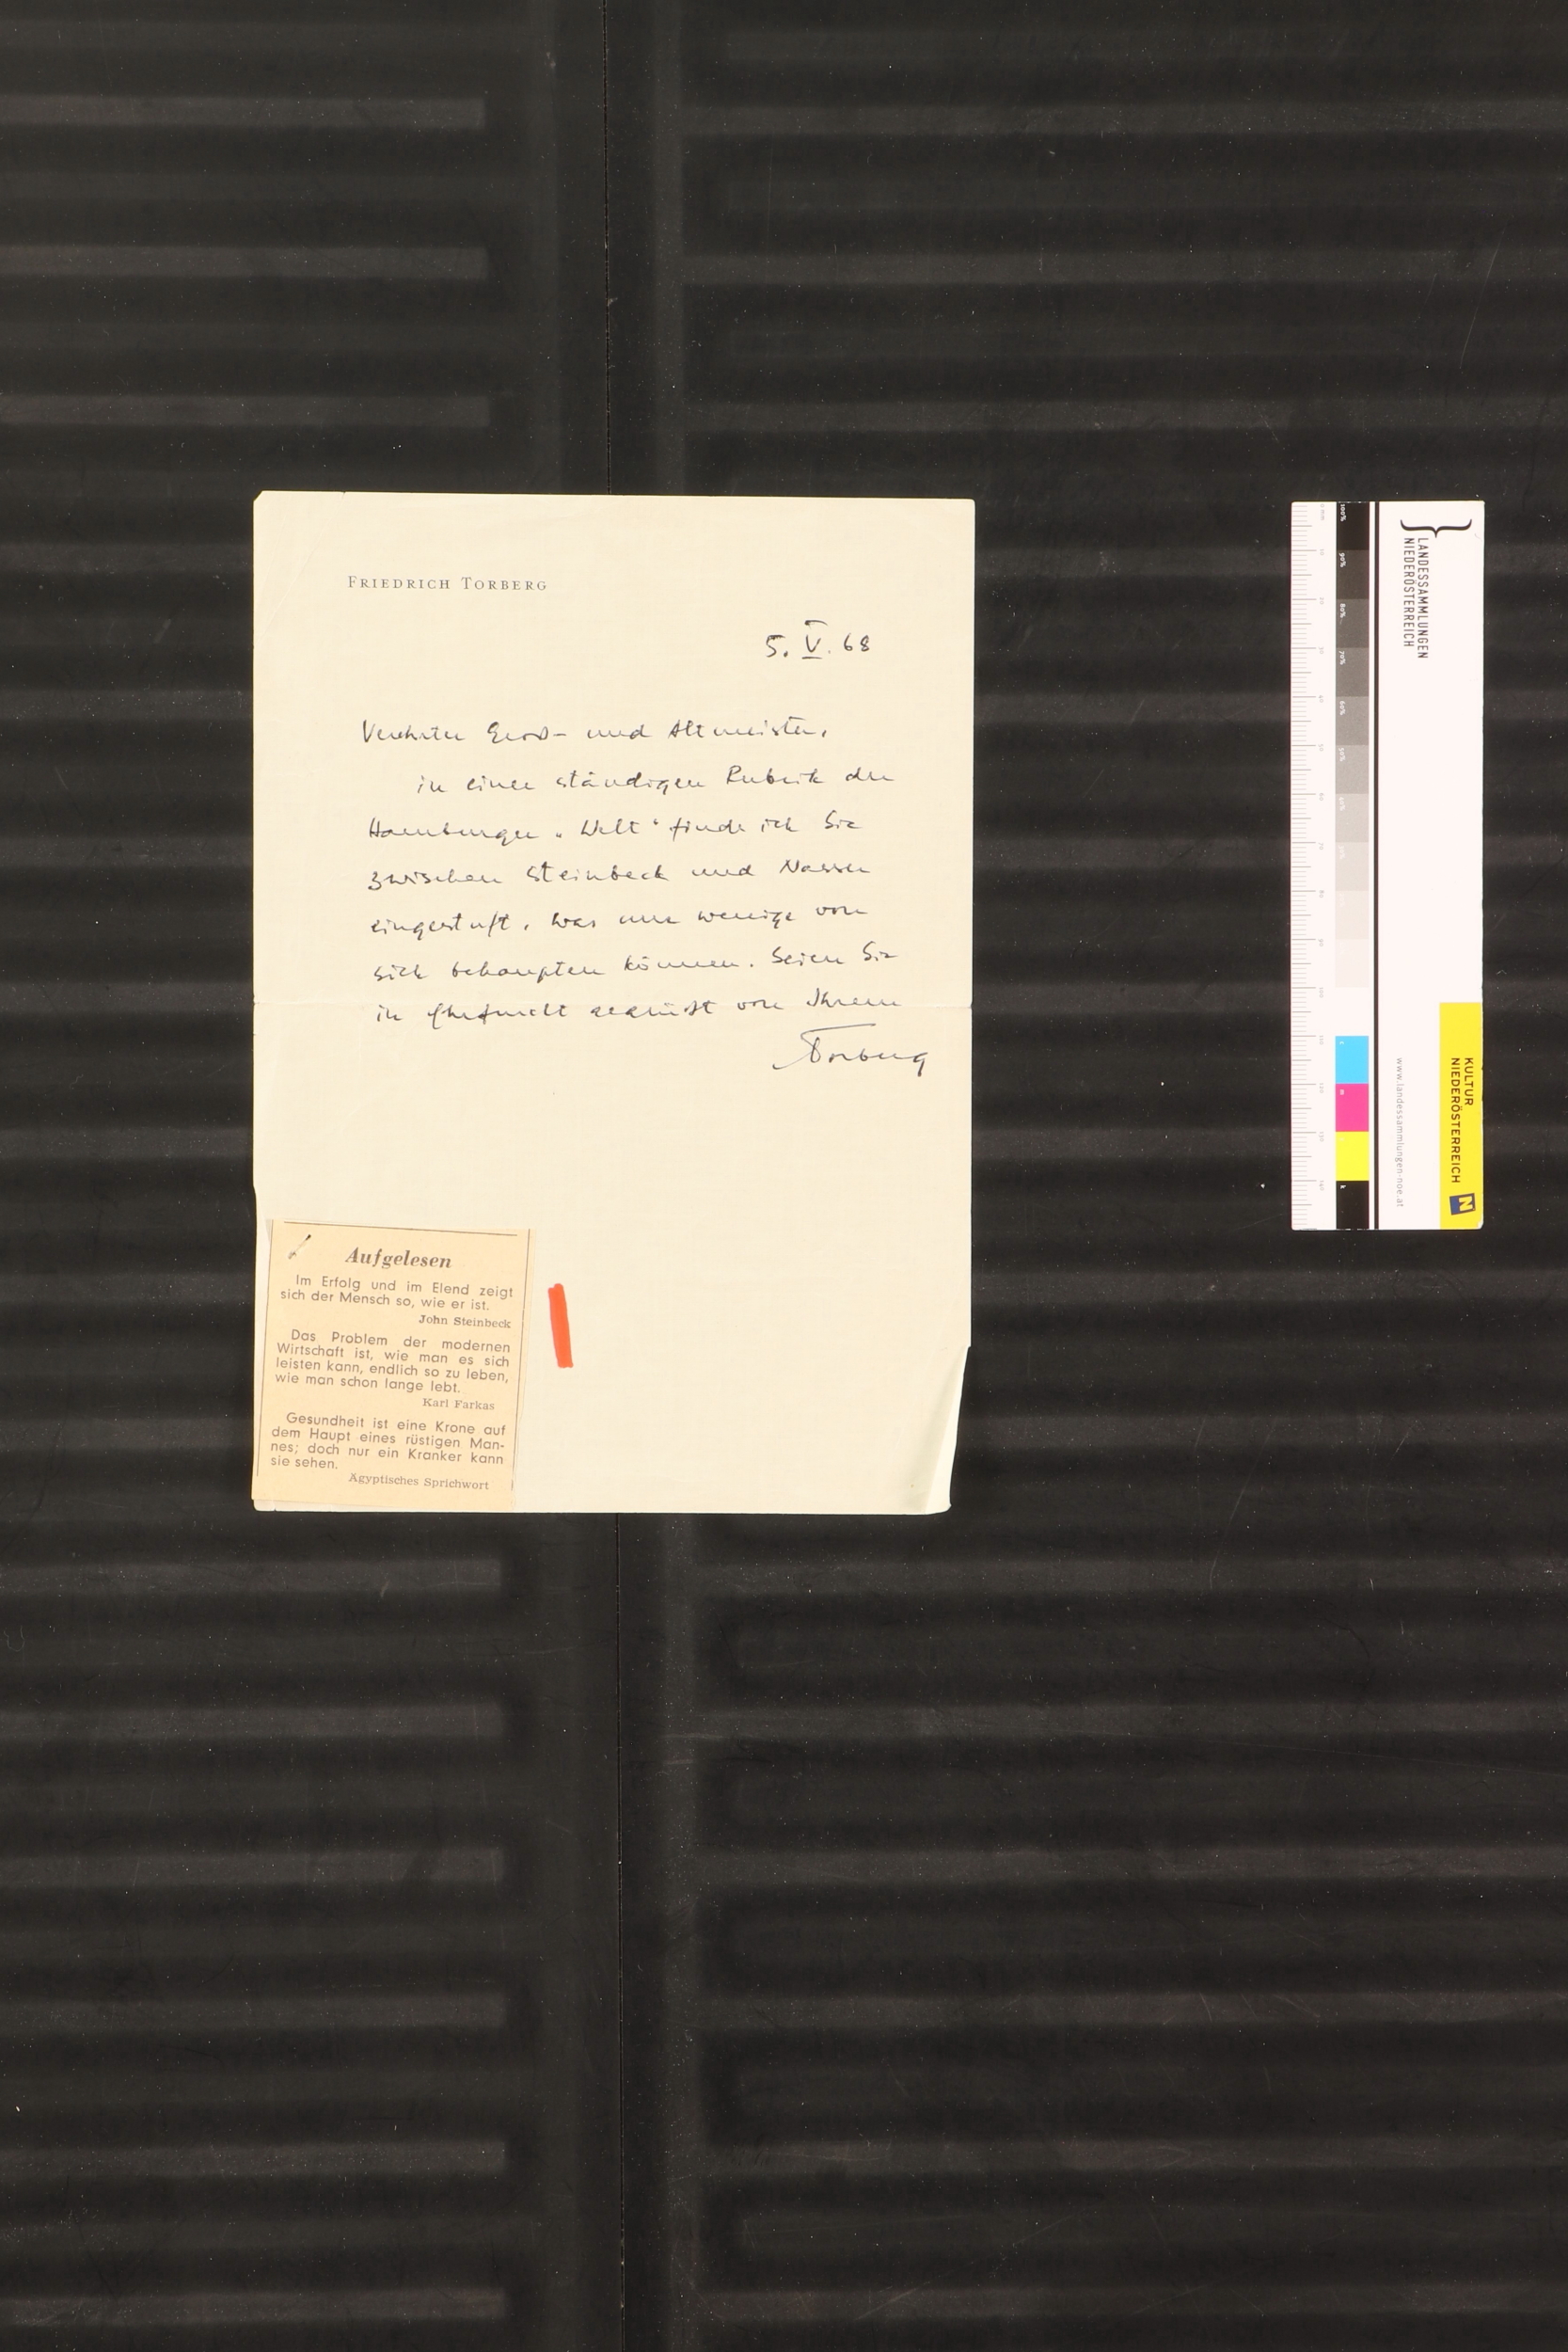 FRIEDRICH TORBERG
5. V. 68
Verehrter Gross- und Altmeister,
in einer ständigen Rubrik der
Hamburger „Welt“ finde ich Sie
zwischen Steinbeck und Nasser
eingestuft, was nur wenige von
sich behaupten können. Seien Sie
in Ehrfurcht gegrüsst von Ihrem
Torberg
Aufgelesen
Im Erfolg und im Elend zeigt
sich der Mensch so, wie er ist.
John Steinbeck
Das Problem der modernen
Wirtschaft ist, wie man es sich
leisten kann, endlich so zu leben,
wie man schon lange lebt.
Karl Farkas
Gesundheit ist eine Krone auf
dem Haupt eines rüstigen Man-
nes; doch nur ein Kranker kann
sie sehen.
Ägyptisches Sprichwort
LANDESSAMMLUNGEN
NIEDERÖSTERREICH
www.landessammlungen-noe.at
KULTUR
NIEDERÖSTERREICH
N
100%
90%
80%
70%
60%
50%